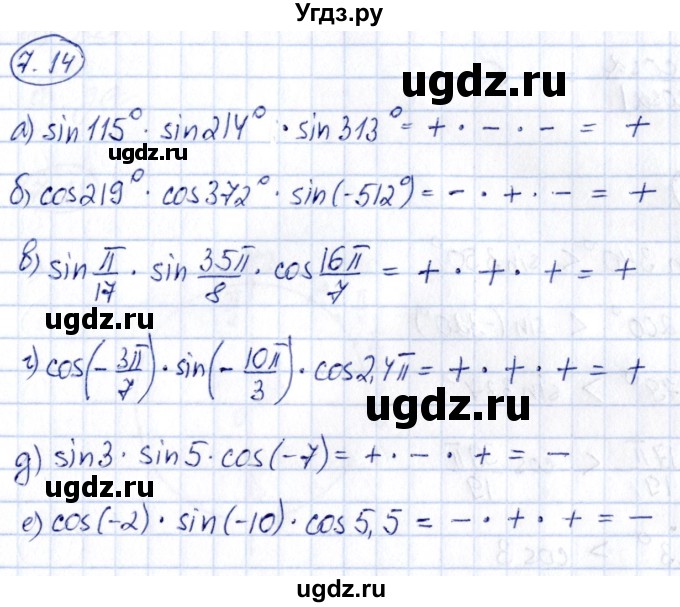 Угдз.ру
7.14
ugdz.ru
а) sin115° · sin214° · sin313° = + · - · - = +
ugdz.ru
б) cos219° · cos372° · sin(-512°) = - · + · - = +
в) sin π/17 · sin 35π/8 · cos 16π/7 = + · + · + = +
ugdz.ru
г) cos(-3π/7) · sin(-10π/3) · cos2,4π = + · + · + = +
ugdz.ru
д) sin3 · sin5 · cos(-7) = + · - · + = -
ugdz.ru
е) cos(-2) · sin(-10) · cos5,5 = - · + · + = -
ugdz.ru